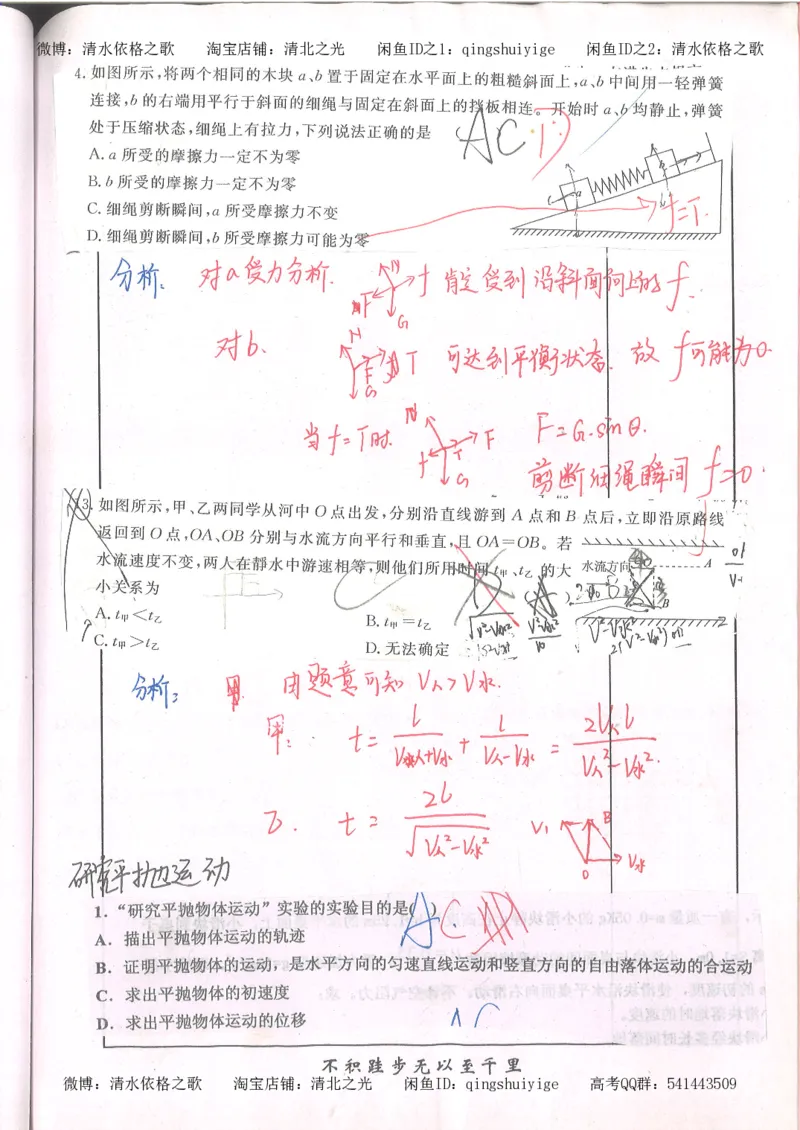 微博：清水依格之歌 淘宝店铺：清北之光 闲鱼ID之1：qingshuiyige 闲鱼ID之2：清水依格之歌
4. 如图所示，将两个相同的木块 a、b 置于固定在水平面上的粗糙斜面上，a、b 中间用一轻弹簧
连接，b 的右端用平行于斜面的细绳与固定在斜面上的挡板相连。开始时 a、b 均静止，弹簧
处于压缩状态，细绳上有拉力，下列说法正确的是
ACD
A. a 所受的摩擦力一定不为零
B. b 所受的摩擦力一定不为零
C. 细绳剪断瞬间，a 所受摩擦力不变
f=T.
D. 细绳剪断瞬间，b 所受摩擦力可能为零
分析： 对a受力分析. N f F G 肯定受到沿斜面向上的 f.
对b. N F T G 可达到平衡状态. 故 f可能为0.
当 f=T时. N F f T G F=G·sinθ.
剪断细绳瞬间 f=0.
13. 如图所示，甲、乙两同学从河中 O 点出发，分别沿直线游到 A 点和 B 点后，立即沿原路线
返回到 O 点，OA、OB 分别与水流方向平行和垂直，且 OA＝OB。若
水流速度不变，两人在静水中游速相等，则他们所用时间 t甲、t乙 的大
小关系为
水流方向 O A
B
A. t甲＜t乙 B. t甲＝t乙
C. t甲＞t乙 D. 无法确定
分析： 由题意可知 V人>V水.
甲： t= L/(V人+V水) + L/(V人-V水) = 2V人L/(V人²-V水²).
乙. t= 2L/√(V人²-V水²) V₁ B V水 O
研究平抛运动
1. “研究平抛物体运动”实验的实验目的是( ) AC
A．描出平抛物体运动的轨迹
B．证明平抛物体的运动，是水平方向的匀速直线运动和竖直方向的自由落体运动的合运动
C．求出平抛物体的初速度
D．求出平抛物体运动的位移
不积跬步无以至千里
微博：清水依格之歌 淘宝店铺：清北之光 闲鱼ID：qingshuiyige 高考QQ群：541443509